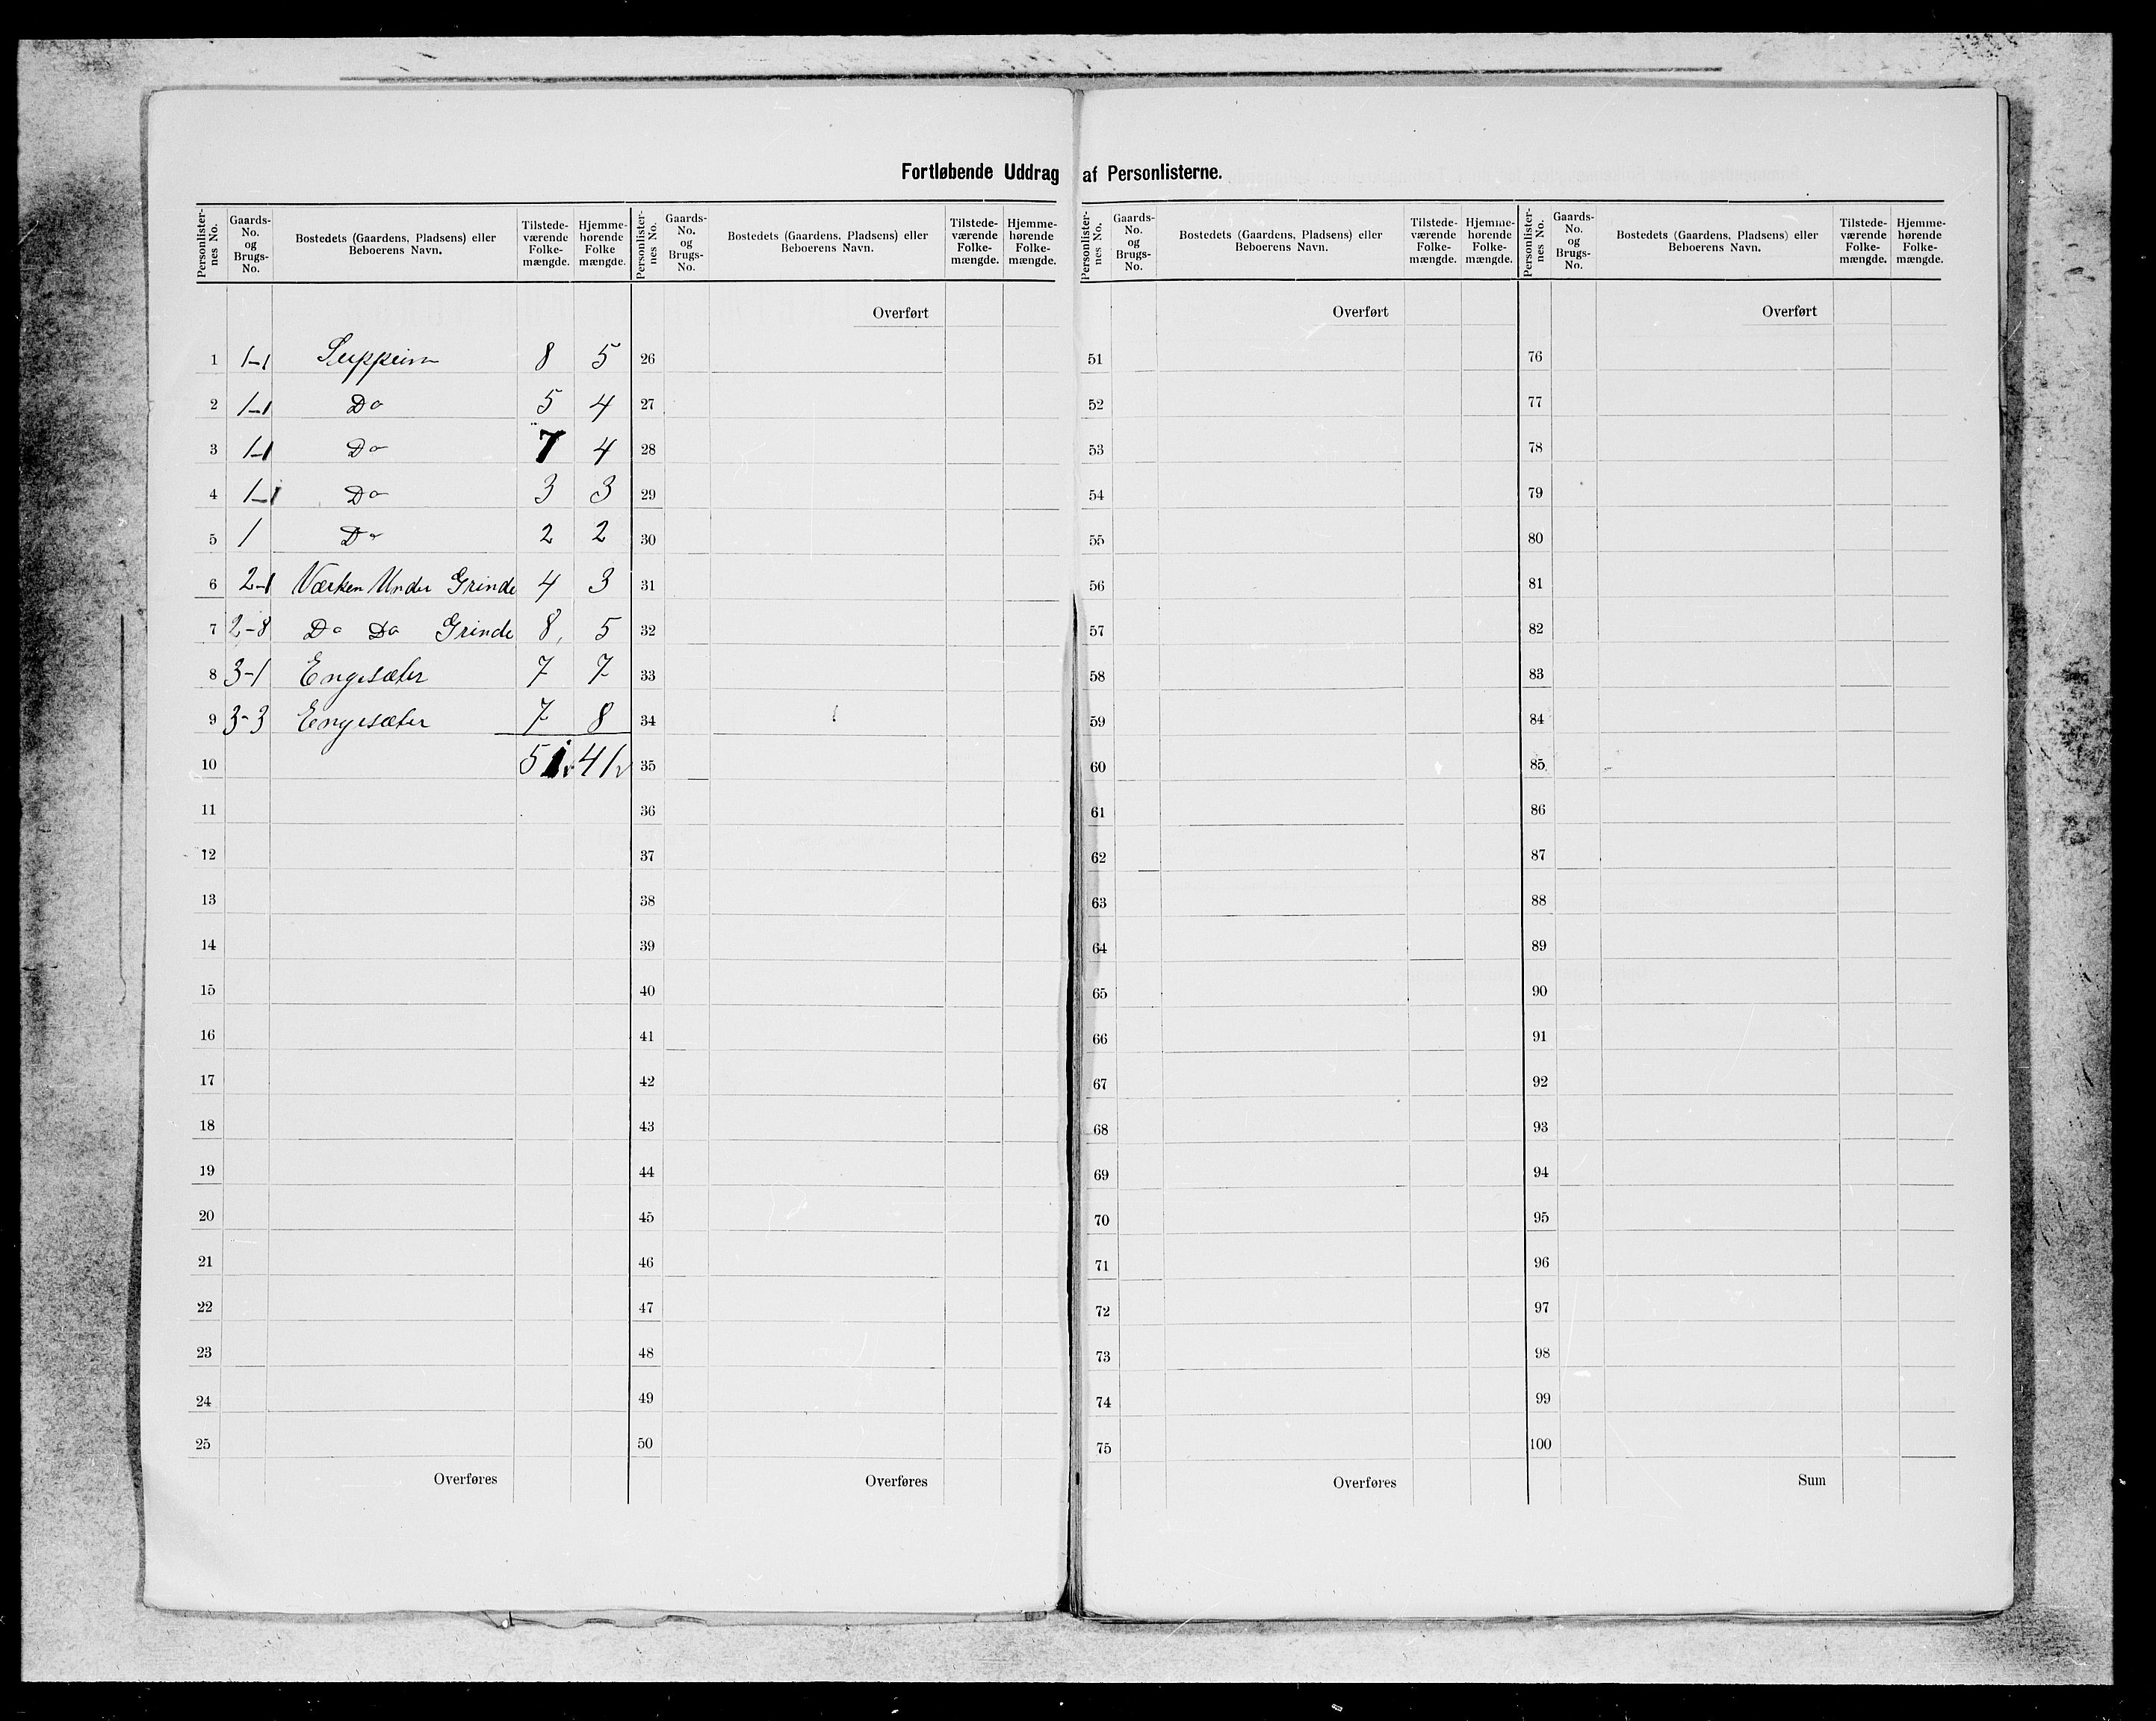 Fortløbende Uddrag af Personlisterne.
Personlister-nes No. | Gaards-No. og Brugs-No. | Bostedets (Gaardens, Pladsens) eller Beboerens Navn. | Tilstede-værende Folke-mængde. | Hjemme-hørende Folke mængde.
1 1-1 Seppeim 8 5
2 1-1 Do 5 4
3 1-1 Do 7 4
4 1-1 Do 3 3
5 1 Do 2 2
6 2-1 Værken Under Grinde 4 3
7 2-8 Do Do Grinde 8, 5
8 3-1 Engesæter 7 7
9 3-3 Engesæter 7 8
10 51 41
11
12
13
14
15
16
17
18
19
20
21
22
23
24
25
Overføres
Personlister-nes No. | Gaards-No. og Brugs-No. | Bostedets (Gaardens, Pladsens) eller Beboerens Navn. | Tilstede-værende Folke-mængde. | Hjemme-hørende Folke-mængde.
Overført
26
27
28
29
30
31
32
33
34
35
36
37
38
39
40
41
42
43
44
45
46
47
48
49
50
Overføres
Personlister-nes No. | Gaards-No. og Brugs-No. | Bostedets (Gaardens, Pladsens) eller Beboerens Navn. | Tilstede-værende Folke-mængde. | Hjemme-hørende Folke-mængde.
Overført
51
52
53
54
55
56
57
58
59
60
61
62
63
64
65
66
67
68
69
70
71
72
73
74
75
Overføres
Personlister-nes No. | Gaards-No. og Brugs-No. | Bostedets (Gaardens, Pladsens) eller Beboerens Navn. | Tilstede-værende Folke-mængde. | Hjemme-hørende Folke-mængde.
Overført
76
77
78
79
80
81
82
83
84
85
86
87
88
89
90
91
92
93
94
95
96
97
98
99
100
Sum